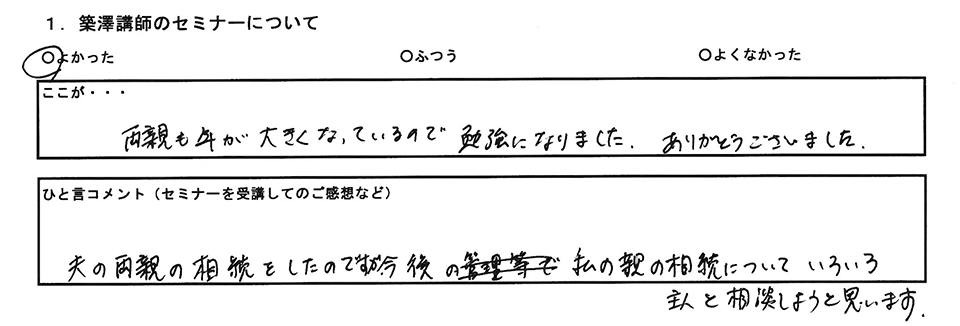 1．築澤講師のセミナーについて
○よかった ○ふつう ○よくなかった
ここが・・・
両親も年が大きくなっているので勉強になりました。ありがとうございました。
ひと言コメント（セミナーを受講してのご感想など）
夫の両親の相続をしたのですが今後の管理等で私の親の相続についていろいろ
主人と相談しようと思います。